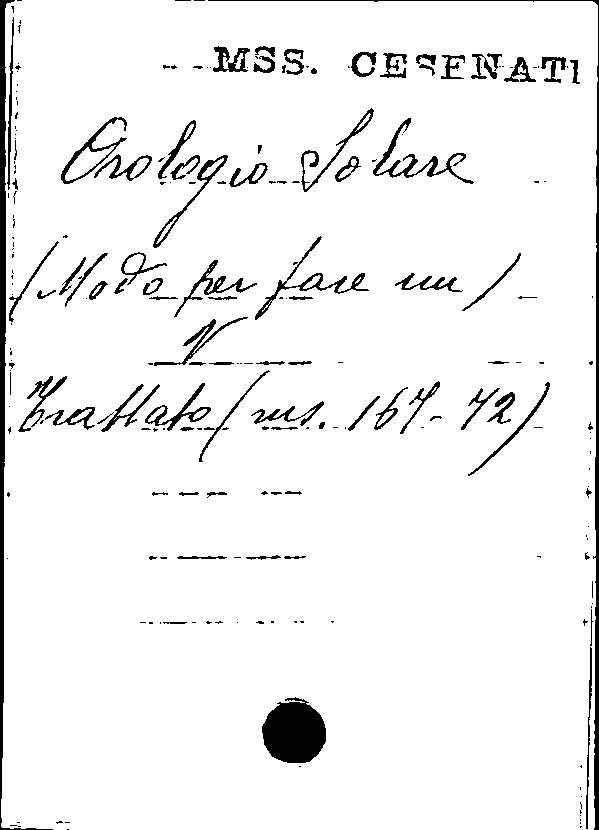 MSS. CESENATI
Orologio Solare
(Modo per fare un)
V
Trattato (ms. 167-72)